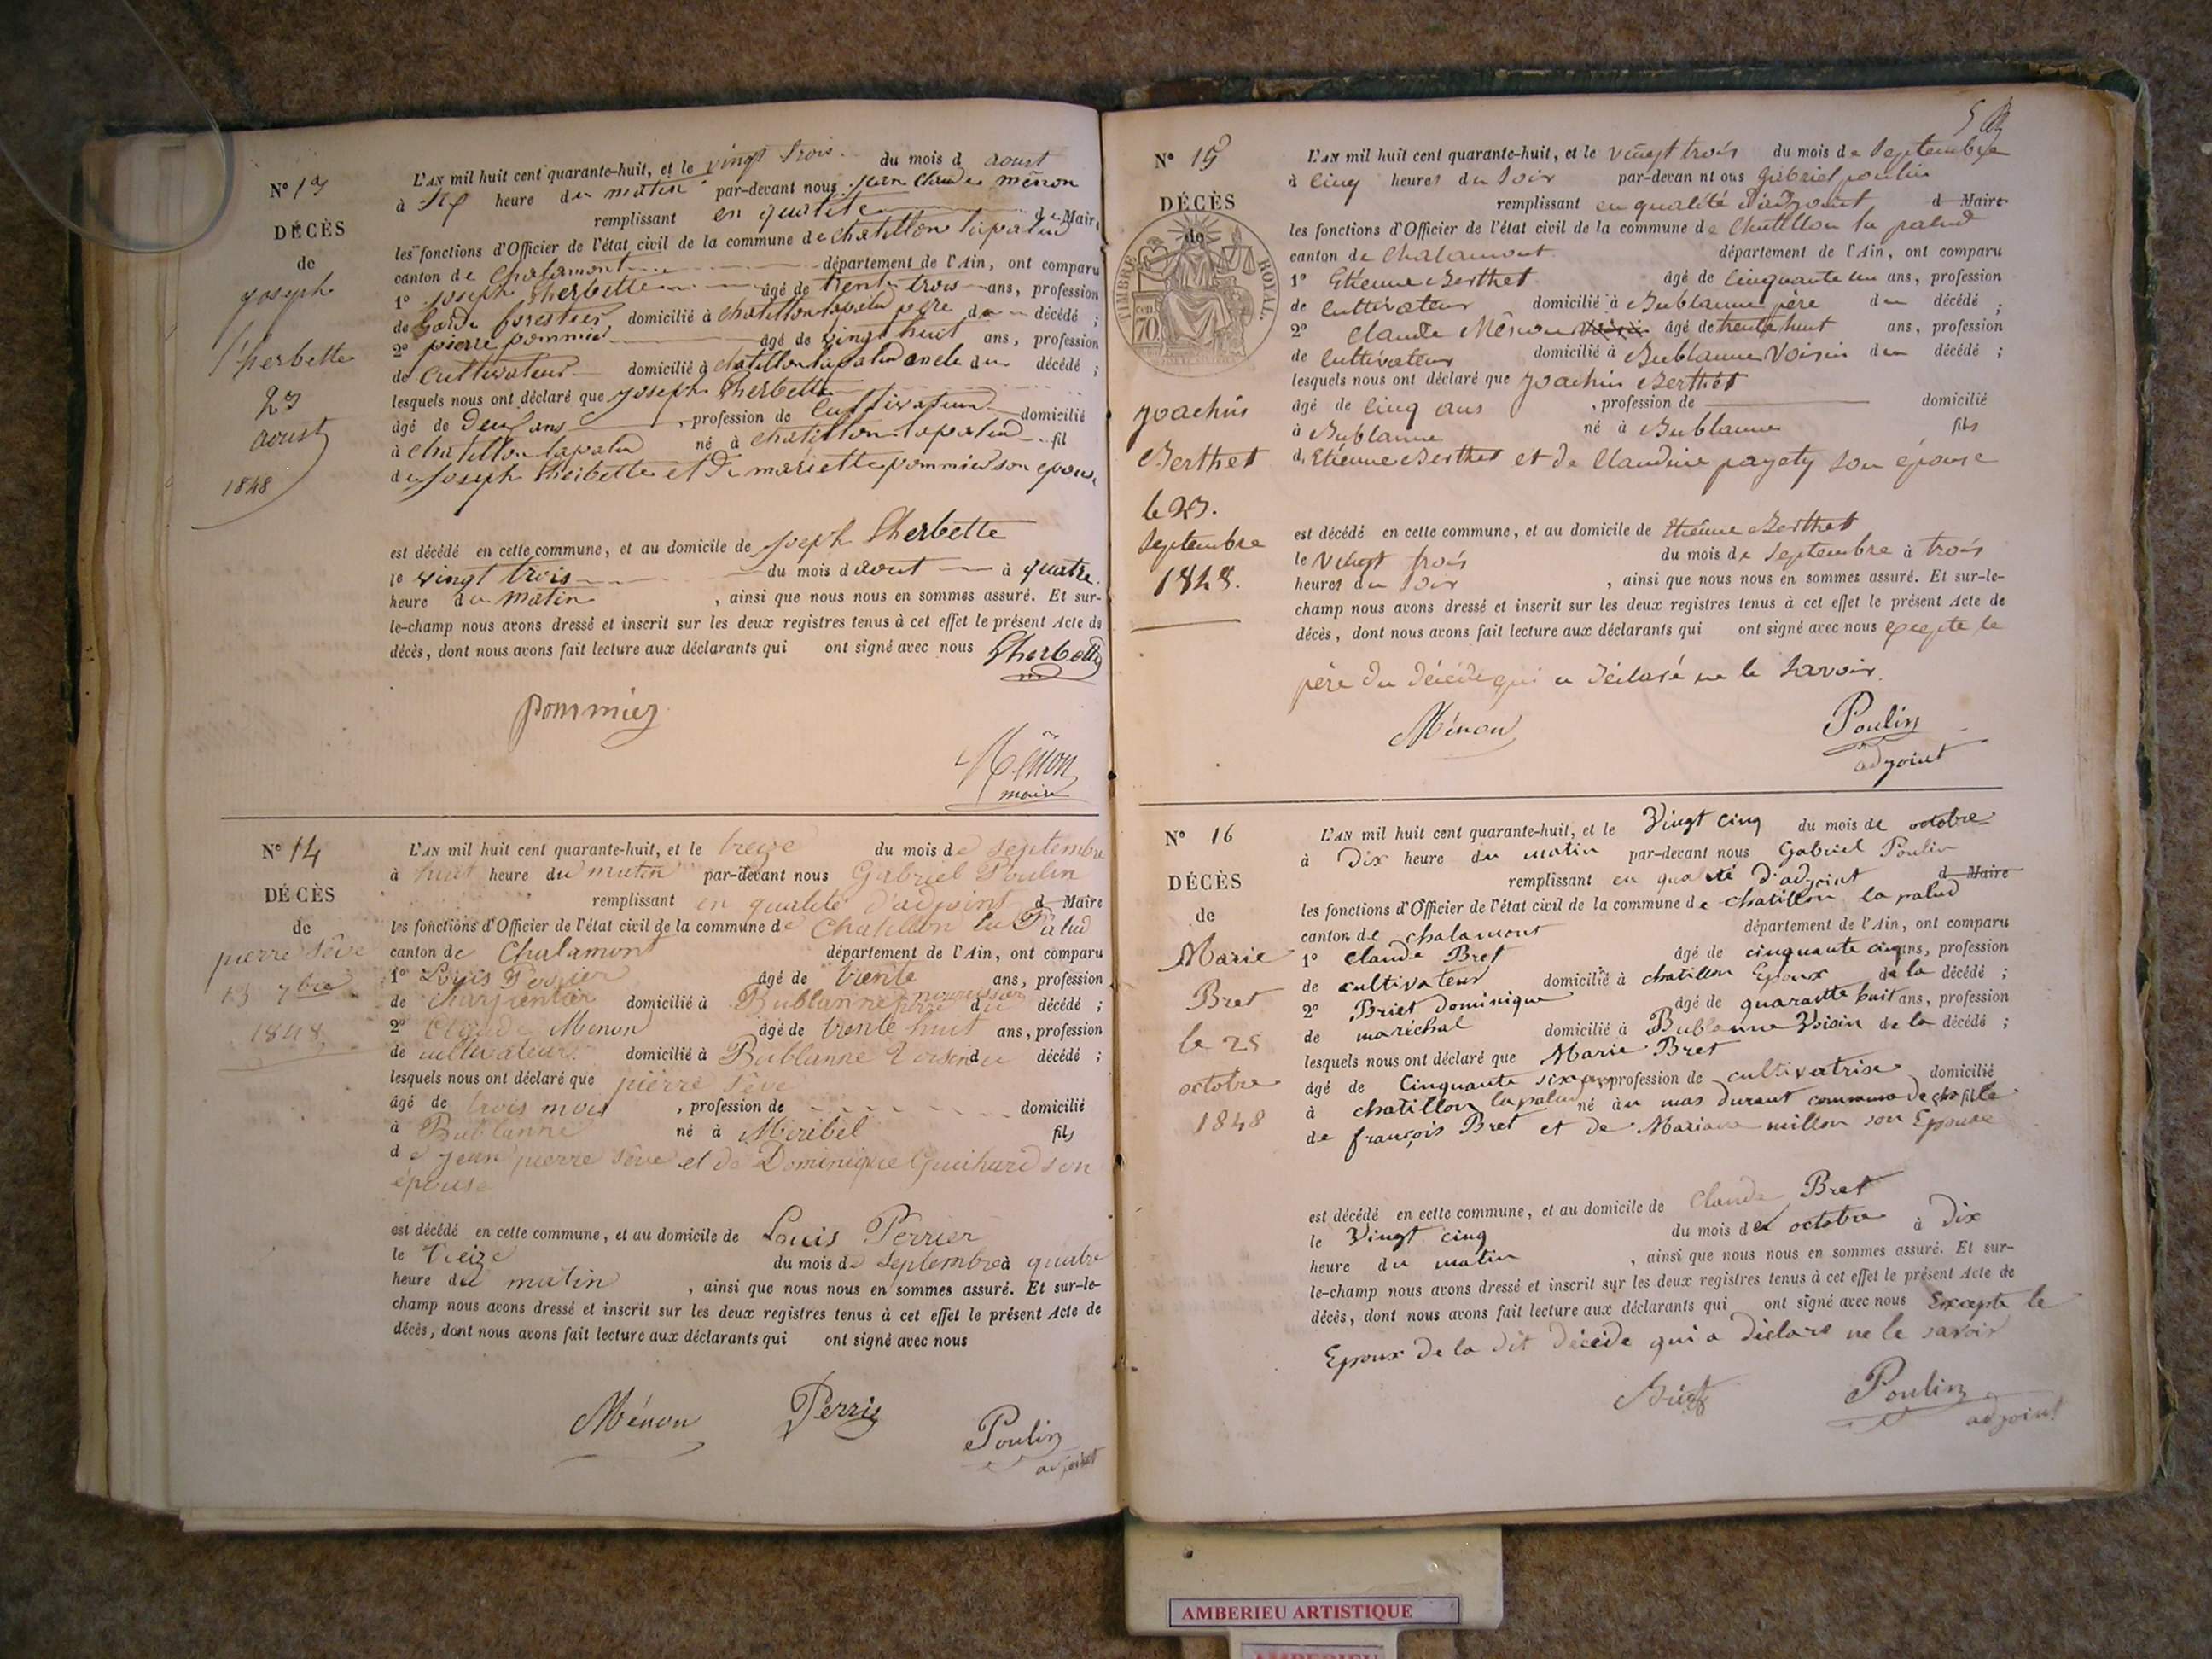 N° 13
DÉCÈS
de
joseph
Lherbette
23
aoust
1848
L'AN mil huit cent quarante-huit, et le vingt trois du mois d aoust
à six heure du matin par-devant nous jean Claude mênon
remplissant en qualité de Maire
les fonctions d'Officier de l'état civil de la commune de chatillon lapalud
canton de Chalamont département de l'Ain, ont comparu
1° joseph Lherbette âgé de trente trois ans, profession
de Garde forestier domicilié à chatillon lapalud père du décédé ;
2° pierre pommier âgé de vingt huit ans, profession
de Cultivateur domicilié à chatillon lapalud oncle du décédé ;
lesquels nous ont déclaré que joseph Lherbette
âgé de Deux ans , profession de Cultivateur domicilié
à Chatillon lapalud né à chatillon lapalud fil
du joseph Lherbette et De mariette pommier son epous
est décédé en cette commune, et au domicile de joseph Lherbette
le vingt trois du mois d aout à quatre
heure du matin , ainsi que nous nous en sommes assuré. Et sur-
le-champ nous avons dressé et inscrit sur les deux registres tenus à cet effet le présent Acte de
décès, dont nous avons fait lecture aux déclarants qui ont signé avec nous Lherbette
pommier
Mênon
maire
N° 14
DÉCÈS
de
pierre Sève
13 7bre
1848
L'AN mil huit cent quarante-huit, et le treize du mois de septembre
à huit heure du matin par-devant nous Gabriel Poulin
remplissant en qualité d'adjoint d Maire
les fonctions d'Officier de l'état civil de la commune de Chatillon la Palud
canton de Chalamont département de l'Ain, ont comparu
1° Louis Perrier âgé de trente ans, profession
de charpentier domicilié à Bublanne père nourissier du décédé ;
2° Claude Menon âgé de trente huit ans, profession
de cultivateur domicilié à Bublanne Voisin du décédé ;
lesquels nous ont déclaré que pierre Sève
âgé de trois mois , profession de domicilié
à Bublanne né à Miribel fils
de jean pierre Sève et de Dominique Guichard son
épouse
est décédé en cette commune, et au domicile de Louis Perrier
le treize du mois de septembre à quatre
heure du matin , ainsi que nous nous en sommes assuré. Et sur-le-
champ nous avons dressé et inscrit sur les deux registres tenus à cet effet le présent Acte de
décès, dont nous avons fait lecture aux déclarants qui ont signé avec nous
Ménon Perrie
Poulin
adjoint
N° 15
DÉCÈS
de
TIMBRE ROYAL.
70
joachin
Berthet
le 23.
Septembre
1848.
L'AN mil huit cent quarante-huit, et le vingt trois du mois de Septembre
à cinq heures du Soir par-devan nt ous Gabriel poulin
remplissant en qualité d'adjoint d Maire
les fonctions d'Officier de l'état civil de la commune de Chatillon la palud
canton de Chalamont département de l'Ain, ont comparu
1° Etienne Berthet âgé de Cinquante un ans, profession
de Cultivateur domicilié à Bublanne père du décédé ;
2° Claude Mênon âgé de trente huit ans, profession
de Cultivateur domicilié à Bublanne Voisin du décédé ;
lesquels nous ont déclaré que joachin Berthet
âgé de Cinq ans , profession de domicilié
à Bublanne né à Bublanne fils
d. Etienne Berthet et de Claudine payety son épouse
est décédé en cette commune, et au domicile de Etienne Berthet
le vingt trois du mois de Septembre à trois
heures du Soir , ainsi que nous nous en sommes assuré. Et sur-le-
champ nous avons dressé et inscrit sur les deux registres tenus à cet effet le présent Acte de
décès, dont nous avons fait lecture aux déclarants qui ont signé avec nous excepte le
père du décédé qui a déclaré ne le Savoir.
Ménon Poulin
adjoint
N° 16
DÉCÈS
de
Marie
Bret
le 25
octobre
1848
L'AN mil huit cent quarante-huit, et le Vingt cinq du mois de octobre
à Dix heure du matin par-devant nous Gabriel Poulin
remplissant en qualité d'adjoint d Maire
les fonctions d'Officier de l'état civil de la commune de chatillon la palud
canton de chalamont département de l'Ain, ont comparu
1° Claude Bret âgé de cinquante cinq ans, profession
de cultivateur domicilié à chatillon Epoux de la décédé ;
2° Briet Dominique âgé de quarante huit ans, profession
de maréchal domicilié à Bublanne Voisin de la décédé ;
lesquels nous ont déclaré que Marie Bret
âgé de Cinquante six ans, profession de cultivatrise domicilié
à chatillon lapalud né au mas durant commune de cha fille
de françois Bret et de Mariane millon son Epouse
est décédé en cette commune, et au domicile de Claude Bret
le Vingt cinq du mois de octobre à Dix
heure du matin , ainsi que nous nous en sommes assuré. Et sur-
le-champ nous avons dressé et inscrit sur les deux registres tenus à cet effet le présent Acte de
décès, dont nous avons fait lecture aux déclarants qui ont signé avec nous Excepte le
Epoux De la dit décédé qui a déclaré ne le savoir
Briet Poulin
adjoint
AMBERIEU ARTISTIQUE
AMBERIEU